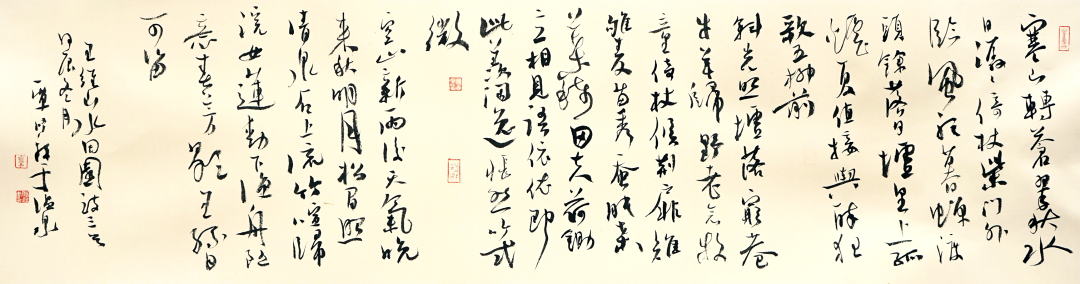 寒山轉蒼翠秋水
日潺湲倚杖柴門外
臨風聽暮蟬渡
頭餘落日墟里上孤
煙復值接輿醉狂
歌五柳前
斜光照墟落窮巷
牛羊歸野老念牧
童倚杖候荊扉雉
雊麥苗秀蠶眠桑
葉稀田夫荷鋤
立相見語依依即
此羨閒逸悵然吟式
微
空山新雨後天氣晚
來秋明月松間照
清泉石上流竹喧歸
浣女蓮動下漁舟隨
意春芳歇王孫自
可留
王維山水田園詩三首
冬月